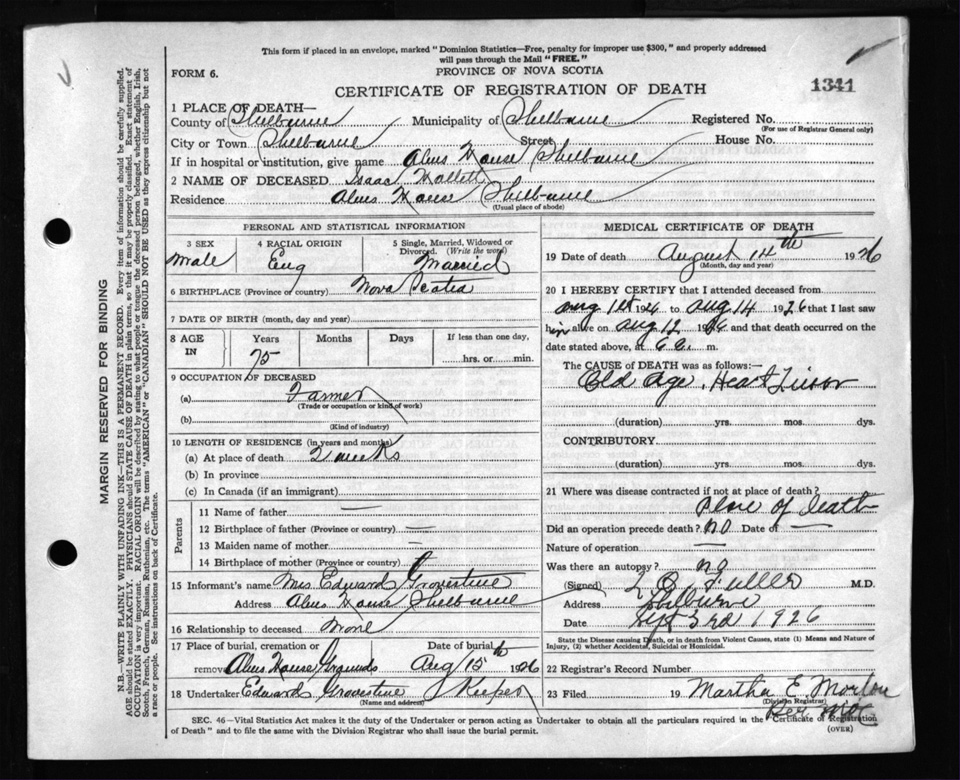 This form if placed in an envelope, marked "Dominion Statistics—Free, penalty for improper use $300," and properly addressed
will pass through the Mail "FREE."
FORM 6.
PROVINCE OF NOVA SCOTIA
1341
CERTIFICATE OF REGISTRATION OF DEATH
1 PLACE OF DEATH—
County of Shelburne Municipality of Shelburne Registered No.
(For use of Registrar General only)
City or Town Shelburne Street House No.
If in hospital or institution, give name Alms House Shelburne
2 NAME OF DECEASED Isaac Hallett
Residence Alms House Shelburne
(Usual place of abode)
PERSONAL AND STATISTICAL INFORMATION
3 SEX Male
4 RACIAL ORIGIN Eng
5 Single, Married, Widowed or
Divorced. (Write the word)
Married
6 BIRTHPLACE (Province or country) Nova Scotia
7 DATE OF BIRTH (month, day and year)
8 AGE IN Years 75 Months Days If less than one day,
hrs. or min.
9 OCCUPATION OF DECEASED
(a) Farmer
(Trade or occupation or kind of work)
(b)
(Kind of industry)
10 LENGTH OF RESIDENCE (in years and months)
(a) At place of death 2 weeks
(b) In province
(c) In Canada (if an immigrant)
Parents
11 Name of father —
12 Birthplace of father (Province or country) —
13 Maiden name of mother —
14 Birthplace of mother (Province or country)
15 Informant's name Mrs Edward Grovestine
Address Alms House Shelburne
16 Relationship to deceased None
17 Place of burial, cremation or Date of burial
removal Alms House Grounds Aug 15th 1926
18 Undertaker Edward Grovestine Keeper
(Name and address)
MEDICAL CERTIFICATE OF DEATH
19 Date of death August 14th 1926
(Month, day and year)
20 I HEREBY CERTIFY that I attended deceased from
Aug 1st 1926 to Aug 14 1926 that I last saw
him alive on Aug 12 1926 and that death occurred on the
date stated above, at 6 a. m.
The CAUSE OF DEATH was as follows:—
Old Age, Heart
(duration) yrs. mos. dys.
CONTRIBUTORY
(duration) yrs. mos. dys.
21 Where was disease contracted if not at place of death?
Place of death
Did an operation precede death? no Date of —
Nature of operation —
Was there an autopsy? no
(Signed) L. O. Fuller M.D.
Address Shelburne
Date Sept 3rd 1926
State the Disease causing Death, or in death from Violent Causes, state (1) Means and Nature of
Injury, (2) whether Accidental, Suicidal or Homicidal.
22 Registrar's Record Number
23 Filed 19 Martha E. Morton
(Division Registrar)
SEC. 46—Vital Statistics Act makes it the duty of the Undertaker or person acting as Undertaker to obtain all the particulars required in the "Certificate of Registration
of Death" and to file the same with the Division Registrar who shall issue the burial permit.
(OVER)
MARGIN RESERVED FOR BINDING
N.B.—WRITE PLAINLY WITH UNFADING INK—THIS IS A PERMANENT RECORD. Every item of information should be carefully supplied.
AGE should be stated EXACTLY. PHYSICIANS should STATE CAUSE OF DEATH in plain terms, so that it may be properly classified. Exact statement of
OCCUPATION is very important. RACIAL ORIGIN will be described by stating to what people or tongue the deceased person belonged, whether English, Irish,
Scotch, French, German, Russian, Ruthenian, etc. The terms "AMERICAN" or "CANADIAN" SHOULD NOT BE USED as they express citizenship but not
a race or people. See instructions on back of Certificate.